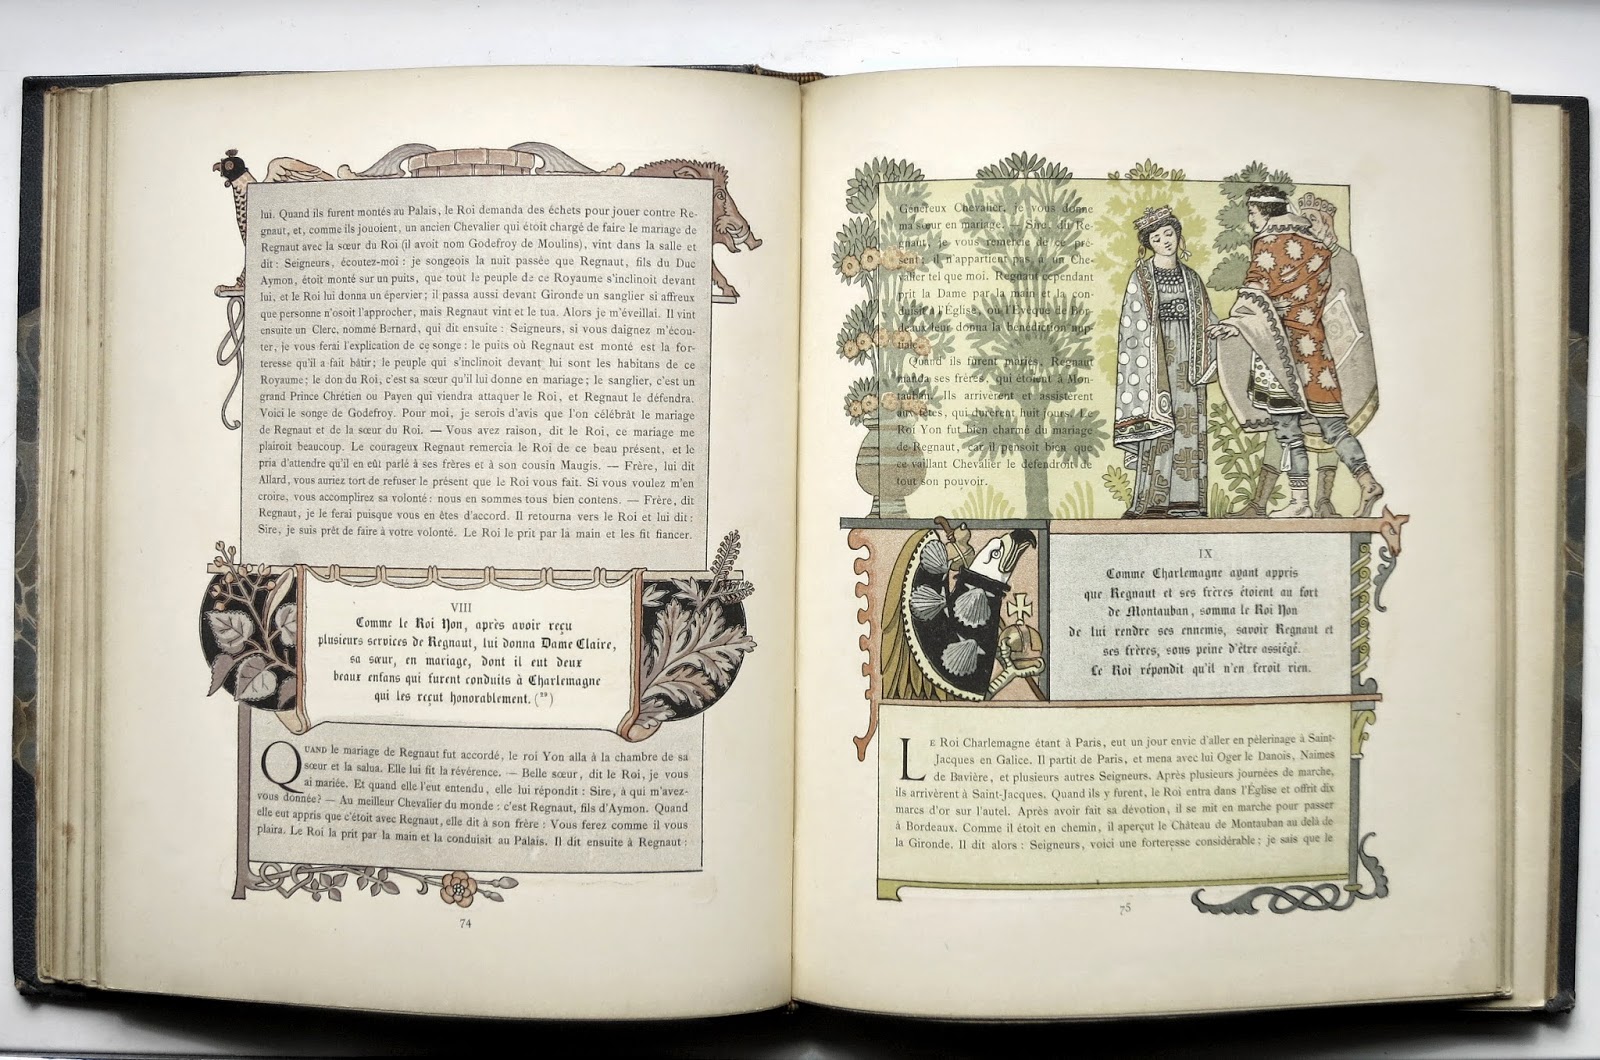 lui. Quand ils furent montés au Palais, le Roi demanda des échets pour jouer contre Re-
gnaut, et, comme ils jouoient, un ancien Chevalier qui étoit chargé de faire le mariage de
Regnaut avec la sœur du Roi (il avoit nom Godefroy de Moulins), vint dans la salle et
dit : Seigneurs, écoutez-moi : je songeois la nuit passée que Regnaut, fils du Duc
Aymon, étoit monté sur un puits, que tout le peuple de ce Royaume s'inclinoit devant
lui, et le Roi lui donna un épervier; il passa aussi devant Gironde un sanglier si affreux
que personne n'osoit l'approcher, mais Regnaut vint et le tua. Alors je m'éveillai. Il vint
ensuite un Clerc, nommé Bernard, qui dit ensuite : Seigneurs, si vous daignez m'écou-
ter, je vous ferai l'explication de ce songe : le puits où Regnaut est monté est la for-
teresse qu'il a fait bâtir; le peuple qui s'inclinoit devant lui sont les habitans de ce
Royaume; le don du Roi, c'est sa sœur qu'il lui donne en mariage; le sanglier, c'est un
grand Prince Chrétien ou Payen qui viendra attaquer le Roi, et Regnaut le défendra.
Voici le songe de Godefroy. Pour moi, je serois d'avis que l'on célébrât le mariage
de Regnaut et de la sœur du Roi. — Vous avez raison, dit le Roi, ce mariage me
plairoit beaucoup. Le courageux Regnaut remercia le Roi de ce beau présent, et le
pria d'attendre qu'il en eût parlé à ses frères et à son cousin Maugis. — Frère, lui dit
Allard, vous auriez tort de refuser le présent que le Roi vous fait. Si vous voulez m'en
croire, vous accomplirez sa volonté : nous en sommes tous bien contens. — Frère, dit
Regnaut, je le ferai puisque vous en êtes d'accord. Il retourna vers le Roi et lui dit :
Sire, je suis prêt de faire à votre volonté. Le Roi le prit par la main et les fit fiancer.
VIII
Comme le Roi Yon, après avoir reçu
plusieurs services de Regnaut, lui donna Dame Claire,
sa sœur, en mariage, dont il eut deux
beaux enfans qui furent conduits à Charlemagne
qui les reçut honorablement. (29)
QUAND le mariage de Regnaut fut accordé, le roi Yon alla à la chambre de sa
sœur et la salua. Elle lui fit la révérence. — Belle sœur, dit le Roi, je vous
ai mariée. Et quand elle l'eut entendu, elle lui répondit : Sire, à qui m'avez-
vous donnée? — Au meilleur Chevalier du monde : c'est Regnaut, fils d'Aymon. Quand
elle eut appris que c'étoit avec Regnaut, elle dit à son frère : Vous ferez comme il vous
plaira. Le Roi la prit par la main et la conduisit au Palais. Il dit ensuite à Regnaut :
74
Généreux Chevalier, je vous donne
ma sœur en mariage. — Sire, dit Re-
gnaut, je vous remercie de ce pré-
sent; il n'appartient pas à un Che-
valier tel que moi. Regnaut cependant
prit la Dame par la main et la con-
duisit à l'Église, où l'Évêque de Bor-
deaux leur donna la bénédiction nup-
tiale.
Quand ils furent mariés, Regnaut
manda ses frères, qui étoient à Mon-
tauban. Ils arrivèrent et assistèrent
aux fêtes, qui durèrent huit jours. Le
Roi Yon fut bien charmé du mariage
de Regnaut, car il pensoit bien que
ce vaillant Chevalier le défendroit de
tout son pouvoir.
IX
Comme Charlemagne ayant appris
que Regnaut et ses frères étoient au fort
de Montauban, somma le Roi Yon
de lui rendre ses ennemis, savoir Regnaut et
ses frères, sous peine d'être assiégé.
Le Roi répondit qu'il n'en feroit rien.
LE Roi Charlemagne étant à Paris, eut un jour envie d'aller en pèlerinage à Saint-
Jacques en Galice. Il partit de Paris, et mena avec lui Oger le Danois, Naimes
de Bavière, et plusieurs autres Seigneurs. Après plusieurs journées de marche,
ils arrivèrent à Saint-Jacques. Quand ils y furent, le Roi entra dans l'Église et offrit dix
marcs d'or sur l'autel. Après avoir fait sa dévotion, il se mit en marche pour passer
à Bordeaux. Comme il étoit en chemin, il aperçut le Château de Montauban au delà de
la Gironde. Il dit alors : Seigneurs, voici une forteresse considérable; je sais que le
75